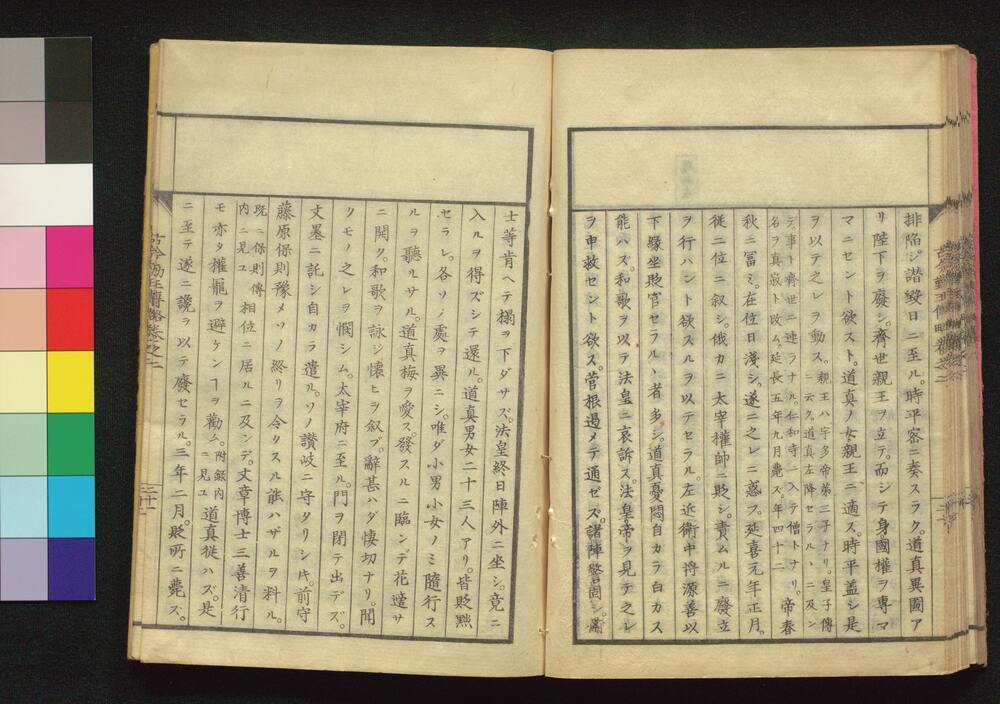 排陷シ譛毀日ニ至ル。時平密ニ奏スラク道真異圖ア
リ陛下ヲ廢シ。齊世親王ヲ立テ。而シテ身國權ヲ專マ
マニセント欲スト。道真ノ女親王ニ適ス。時平盖シ是
ヲ以テ之レヲ動ス。親王ハ宇多帝第三子ナリ。皇子傳
ニ云ク道真左降セラルヽニ及ン
デ事ト齊世ニ連ラナル。仁和寺ニ入テ僧トナリ。
名ヲ真寂ト改ム。延長五年九月薨ズ。年四十二
帝春
秋ニ冨ミ。在位日淺シ。遂ニ之レニ惑フ。延喜元年正月。
従二位ニ叙シ。俄カニ太宰權帥ニ貶シ。責ムルニ廢立
ヲ行ハント欲スルヲ以テセラル。左近衛中将源善以
下縁坐貶官セラルヽ者多シ。道真憂悶自カラ白カス
能ハズ。和歌ヲ以テ法皇ニ哀訴ス。法皇帝ヲ見テ之レ
ヲ申救セント欲ス。菅根遏メテ通ゼズ。諸陣警固シ。
士等肯ヘテ榻ヲ下ダサズ。法皇終日陣外ニ坐シ。竟ニ
入ルヲ得ズシテ還ル。道真男女二十三人アリ。皆貶黜
セラレ。各ソノ處ヲ異ニシ。唯ダ小男小女ノミ隨行ス
ルヲ聽ルサル。道真梅ヲ愛ス。發スルニ臨ンデ花適サ
ニ開ク。和歌ヲ詠ジ懐ヒヲ叙ブ。辭甚ハダ悽切ナリ。聞
クモノ之レヲ憫シム。太宰府ニ至ル。門ヲ閉テ出デズ。
文墨ニ託シ自カラ遣ル。ソノ讃岐ニ守タリシ𪜈。前守
藤原保則豫メソノ終リヲ令クスル能ハザルヲ料ル。
既ニ保則傳
内ニ見ユ
相位ニ居ルニ及ンデ。文章博士三善清行
モ亦タ權寵ヲ避ケンヿヲ勸ム。附録内
ニ見ユ
道真従ハズ。是
ニ至テ遂ニ讒ヲ以テ廢セラル。三年二月。貶所ニ薨ズ。